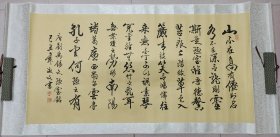 山不在高有仙則名
水不在深有龍則靈
斯是陋室惟吾德馨
苔痕上階綠草色入
簾青談笑有鴻儒往
來無白丁可以調素琴
閱金經無絲竹之亂耳
無案牘之勞形南陽
諸葛廬西蜀子雲亭
孔子云何陋之有
唐劉禹錫文陋室銘
己丑年